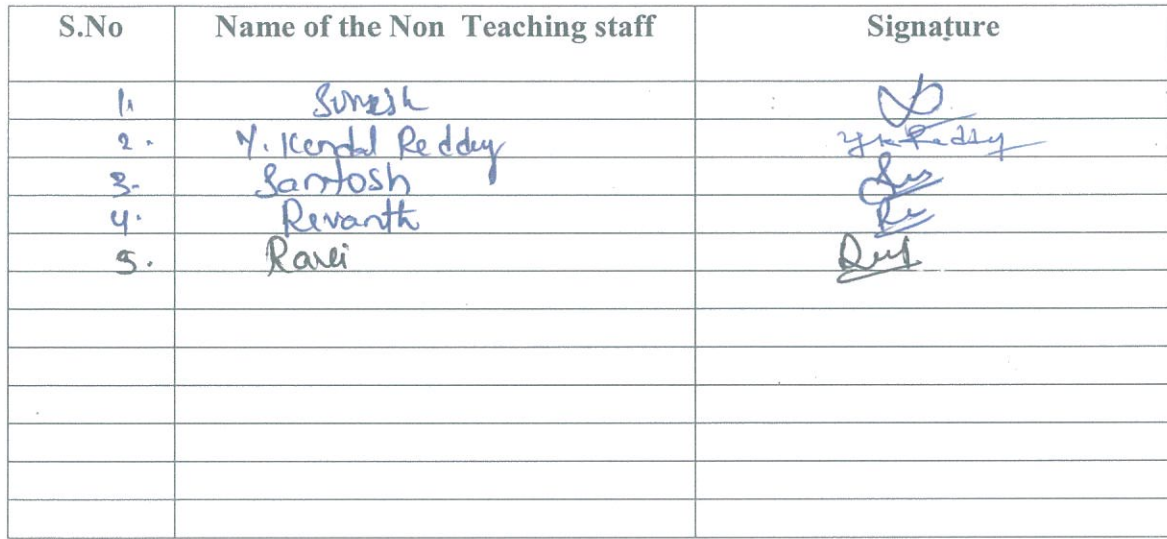 S.No Name of the Non Teaching staff Signature
1. Suresh
2. Y. Kondal Reddy yk Reddy
3. Santosh
4. Revanth
5. Ravi